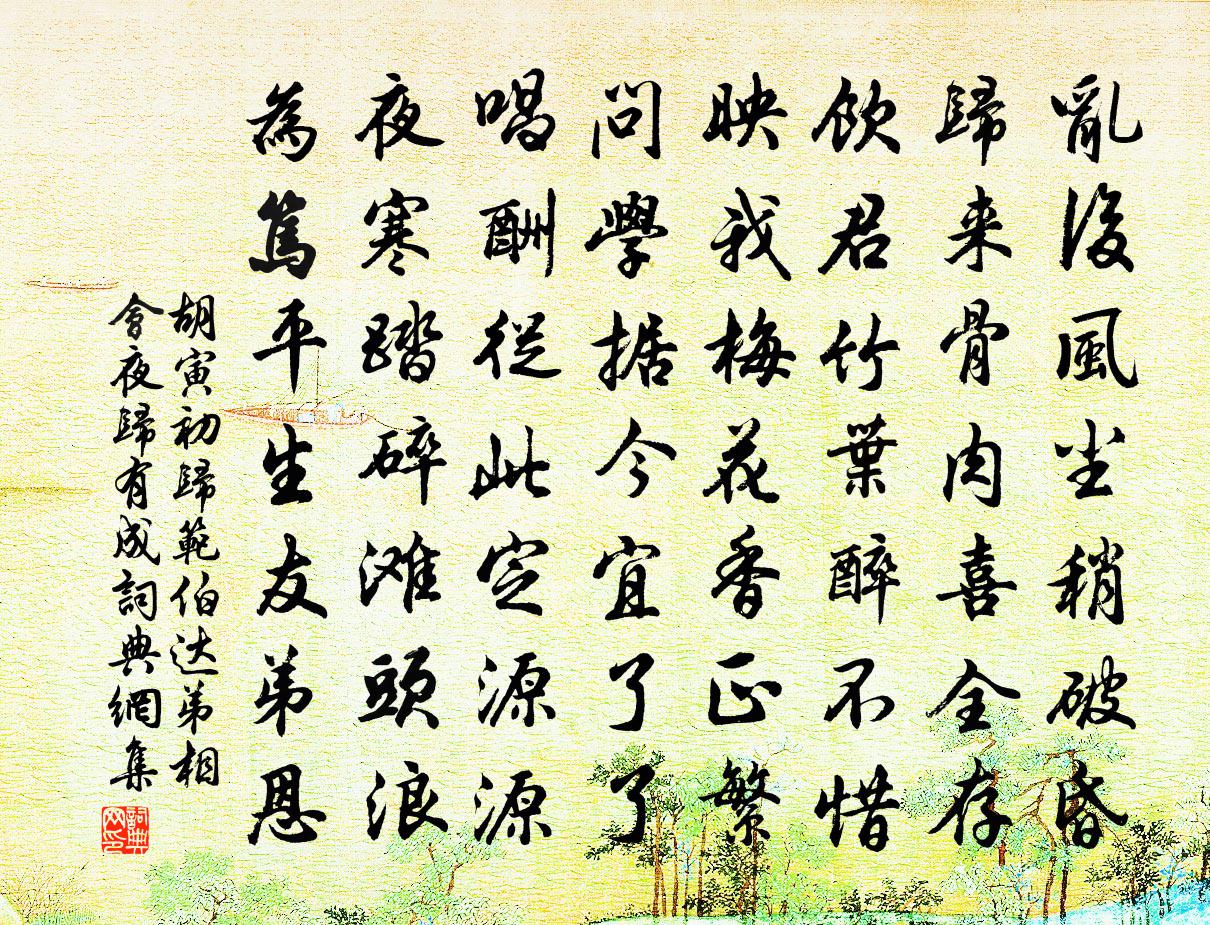 亂後風尘稍破昏
歸来骨肉喜全存
飲君竹葉醉不惜
映我梅花香正繁
問學据今宜了了
唱酬從此定源源
夜寒踏碎滩頭浪
為篤平生友弟恩
胡寅初歸範伯达弟相
會夜歸有成詞典網集
詞典
网印